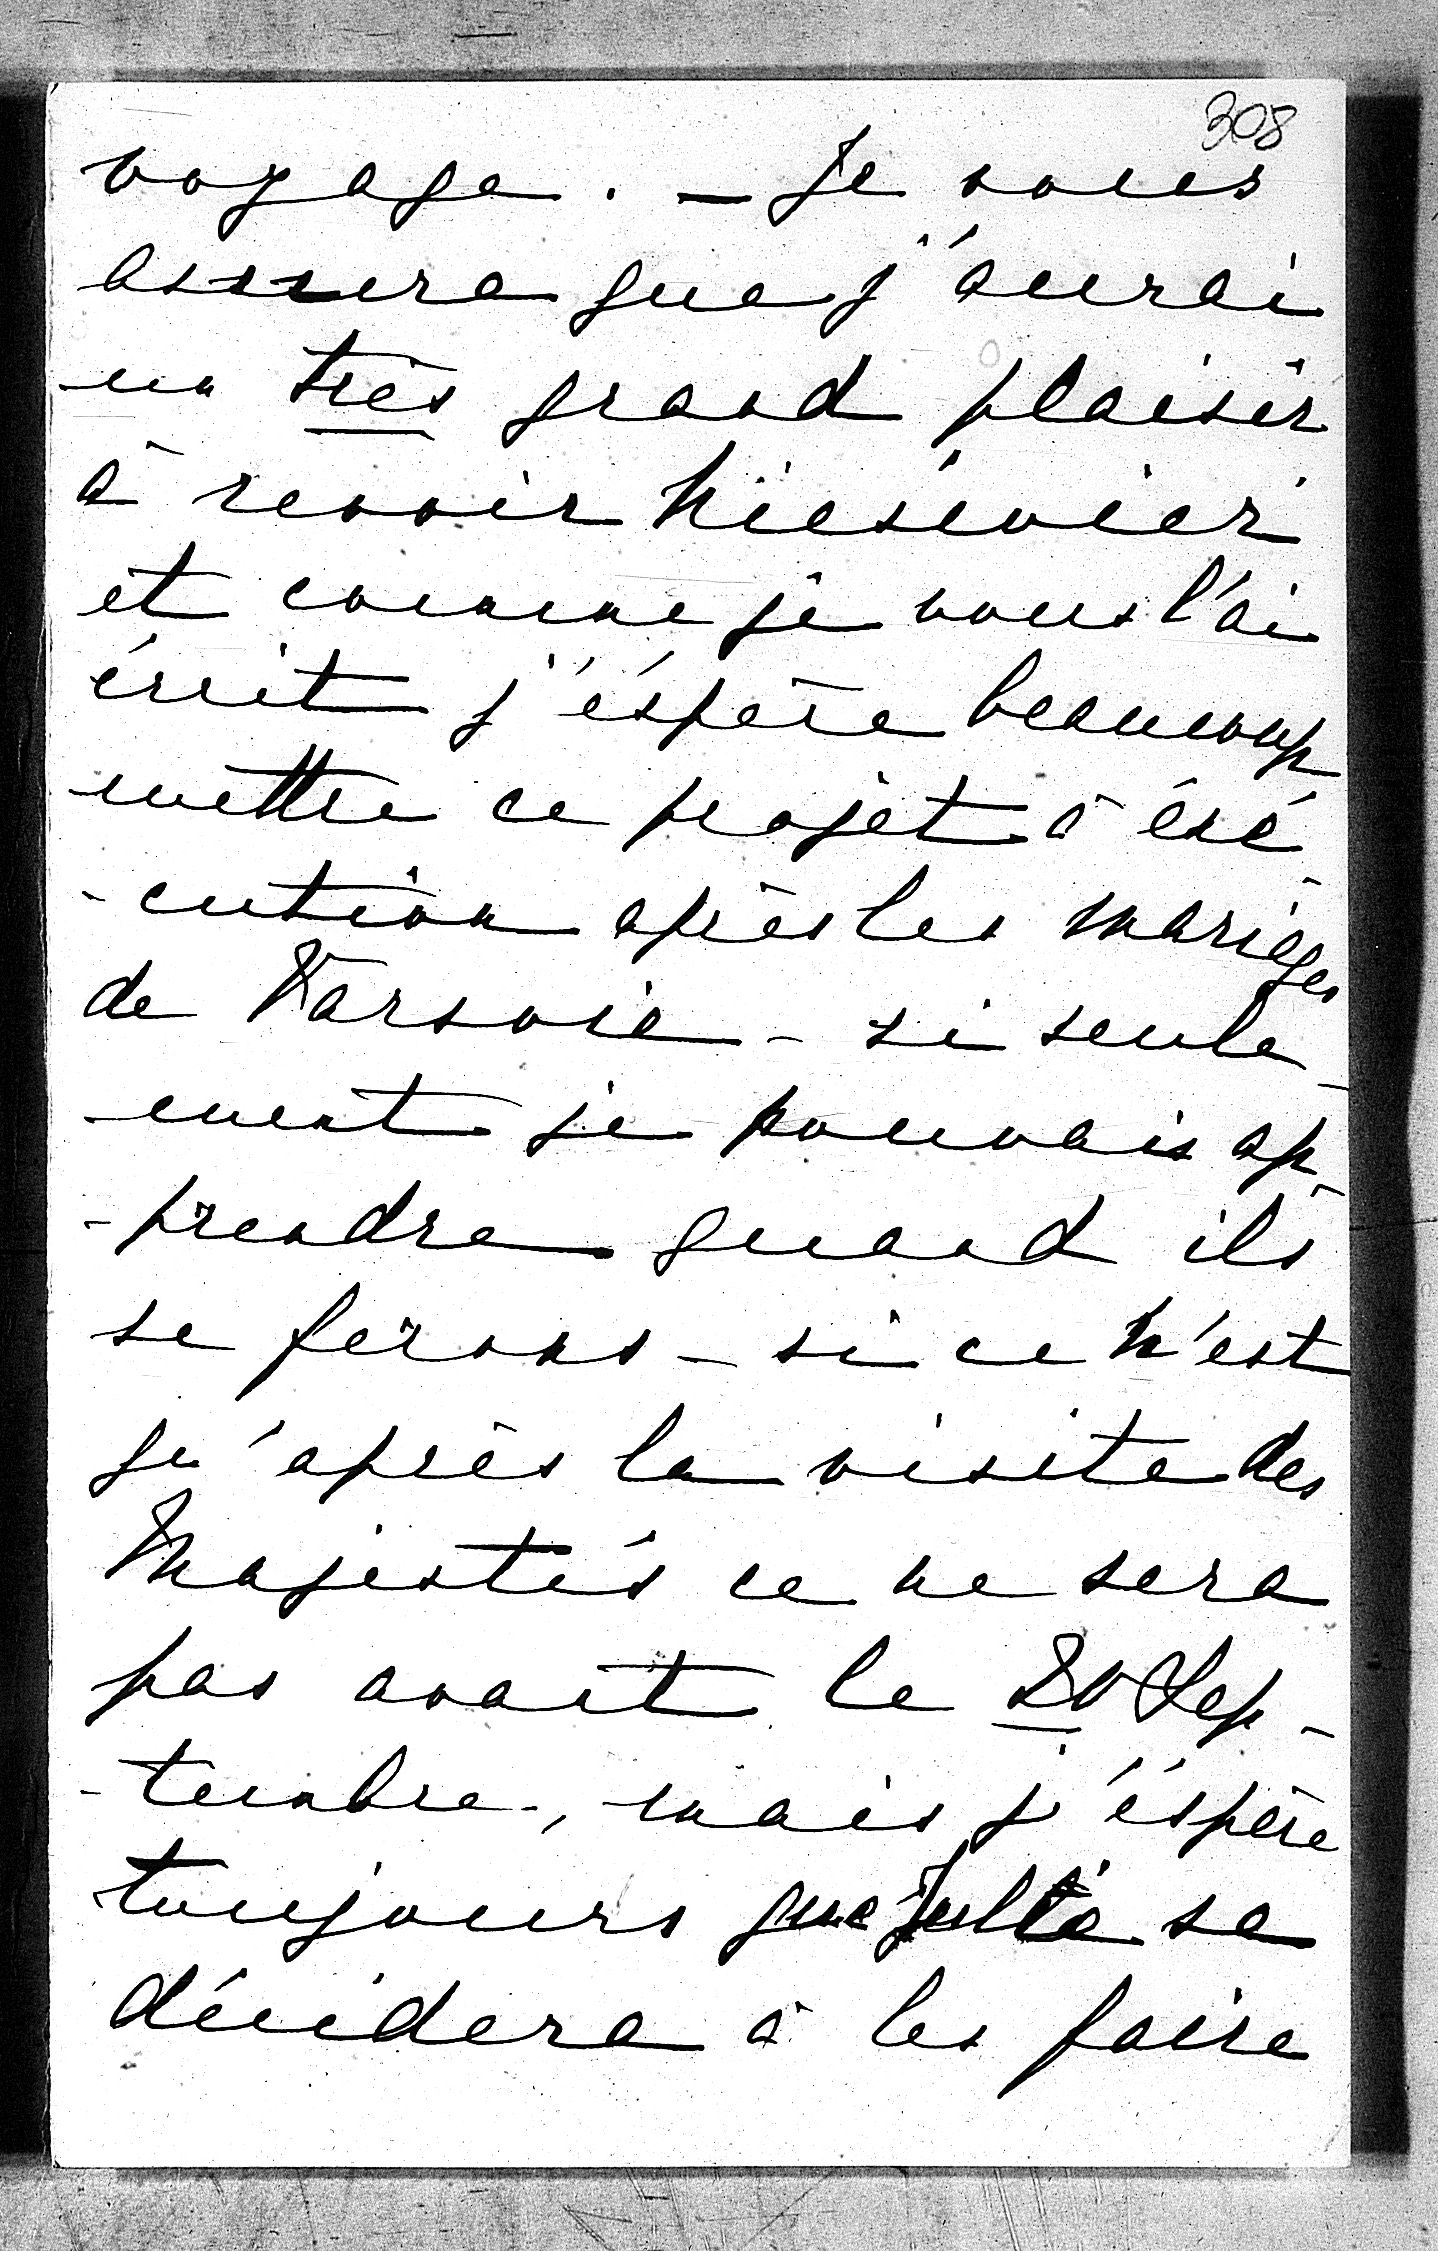 308
voyage. — Je vous
assure que j'aurai
un très grand plaisir
à revoir Niéswiér
et comme je vous l'ai
écrit j'éspère beaucoup
mettre ce projet à éxé
-cution après les mariages
de Varsovie – si seule-
ment je pouvais ap-
-prendre quand ils
se ferons – si ce n'est
qu'après la visite des
Majestés ce ne sera
pas avant le 20 Sep-
-tembre, mais j'éspère
toujours que se
décidera à les faire